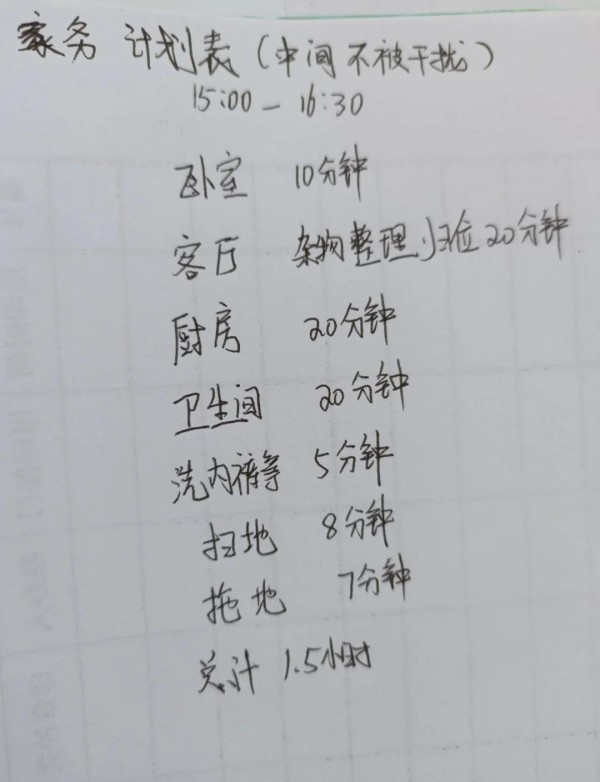 家务 计划表（中间不被干扰）
15:00 — 16:30
卧室 10分钟
客厅 杂物整理归位20分钟
厨房 20分钟
卫生间 20分钟
洗内裤等 5分钟
扫地 8分钟
拖地 7分钟
总计 1.5小时